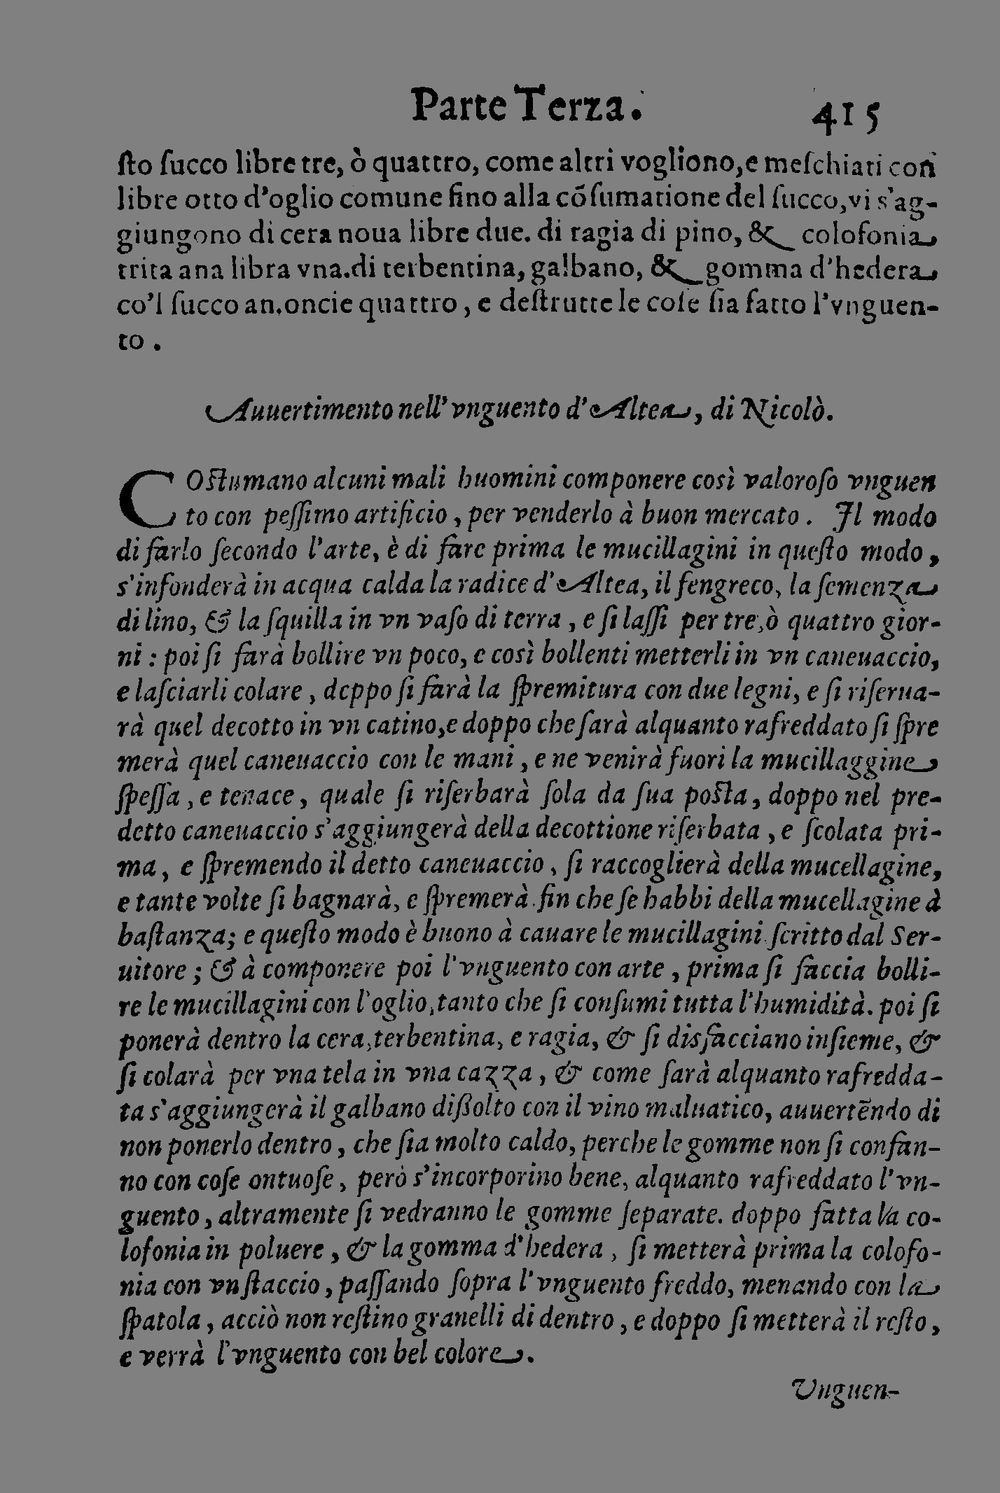 Parte Terza. 415
ſto ſucco libre tre, ò quattro, come altri vogliono,e meſchiati con
libre otto d'oglio comune fino alla cõſumatione del ſucco,vi s'ag-
giungono di cera noua libre due. di ragia di pino, & colofonia
trita ana libra vna.di terbentina, galbano, & gomma d'hedera
co'l ſucco an.oncie quattro, e deſtrutte le coſe ſia fatto l'vnguen-
to .
Auuertimento nell' vnguento d'Altea, di Nicolò.
COſtumano alcuni mali huomini componere così valoroſo vnguen
to con peſſimo artificio, per venderlo à buon mercato . Il modo
di farlo ſecondo l'arte, è di fare prima le mucillagini in queſto modo,
s'infonderà in acqua calda la radice d'Altea, il fengreco, la ſemenza
di lino, & la ſquilla in vn vaſo di terra , e ſi laſſi per tre,ò quattro gior-
ni : poi ſi farà bollire vn poco, e così bollenti metterli in vn caneuaccio,
e laſciarli colare , doppo ſi farà la ſpremitura con due legni, e ſi riſerua-
rà quel decotto in vn catino,e doppo che ſarà alquanto rafreddato ſi ſpre
merà quel caneuaccio con le mani , e ne venirà fuori la mucillaggine
ſpeſſa , e tenace , quale ſi riſerbarà ſola da ſua poſta, doppo nel pre-
detto caneuaccio s'aggiungerà della decottione riſerbata , e ſcolata pri-
ma, e ſpremendo il detto caneuaccio , ſi raccoglierà della mucellagine,
e tante volte ſi bagnarà, e ſpremerà fin che ſe habbi della mucellagine à
baſtanza; e queſto modo è buono à cauare le mucillagini ſcritto dal Ser-
uitore ; & à componere poi l'vnguento con arte , prima ſi faccia bolli-
re le mucillagini con l'oglio,tanto che ſi conſumi tutta l'humidità. poi ſi
ponerà dentro la cera,terbentina, e ragia, & ſi disfacciano inſieme, &
ſi colarà per vna tela in vna cazza , & come ſarà alquanto rafredda-
ta s'aggiungerà il galbano dißolto con il vino maluatico, auuertẽndo di
non ponerlo dentro , che ſia molto caldo, perche le gomme non ſi confan-
no con coſe ontuoſe , però s'incorporino bene, alquanto rafreddato l'vn-
guento , altramente ſi vedranno le gomme ſeparate. doppo fatta la co-
lofonia in poluere , & la gomma d'hedera , ſi metterà prima la colofo-
nia con vn ſtaccio , paſſando ſopra l'vnguento freddo, menando con la
ſpatola , acciò non reſtino granelli di dentro , e doppo ſi metterà il reſto ,
e verrà l'vnguento con bel colore .
Vnguen-